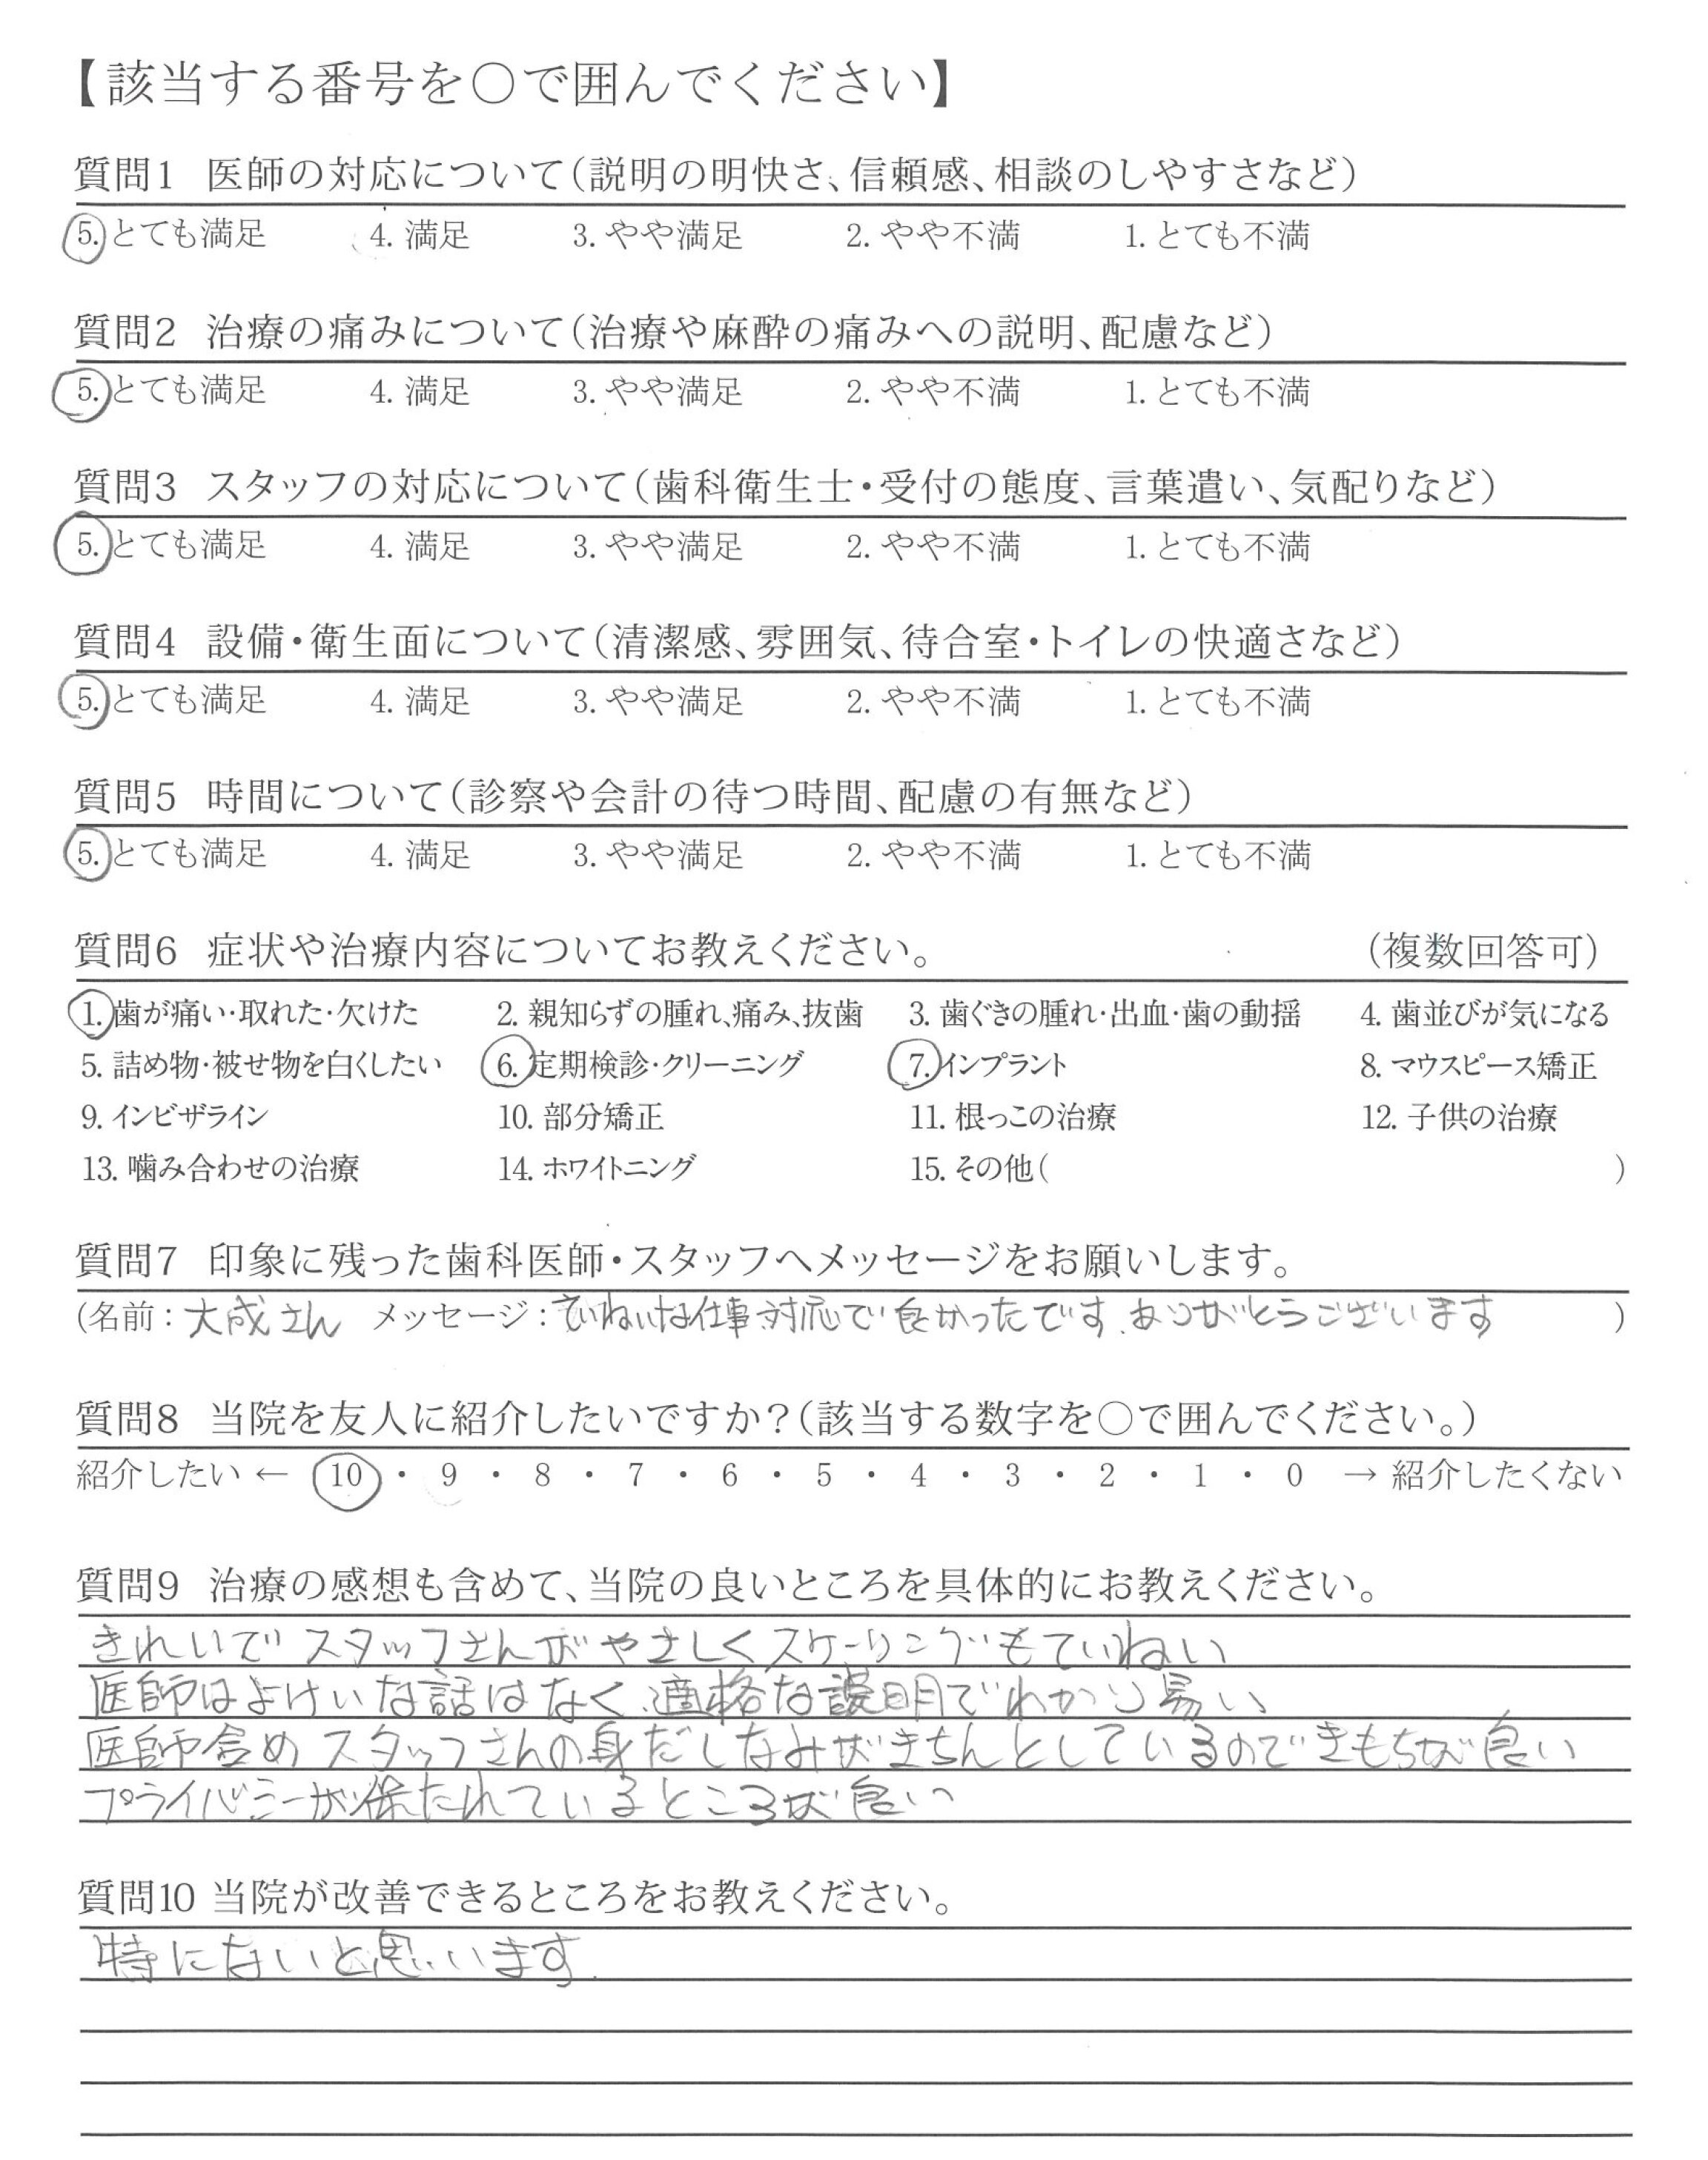 【該当する番号を○で囲んでください】
質問1 医師の対応について(説明の明快さ、信頼感、相談のしやすさなど)
5. とても満足 4. 満足 3. やや満足 2. やや不満 1. とても不満
質問2 治療の痛みについて(治療や麻酔の痛みへの説明、配慮など)
5. とても満足 4. 満足 3. やや満足 2. やや不満 1. とても不満
質問3 スタッフの対応について(歯科衛生士・受付の態度、言葉遣い、気配りなど)
5. とても満足 4. 満足 3. やや満足 2. やや不満 1. とても不満
質問4 設備・衛生面について(清潔感、雰囲気、待合室・トイレの快適さなど)
5. とても満足 4. 満足 3. やや満足 2. やや不満 1. とても不満
質問5 時間について(診察や会計の待つ時間、配慮の有無など)
5. とても満足 4. 満足 3. やや満足 2. やや不満 1. とても不満
質問6 症状や治療内容についてお教えください。 (複数回答可)
1. 歯が痛い・取れた・欠けた 2. 親知らずの腫れ、痛み、抜歯 3. 歯ぐきの腫れ・出血・歯の動揺 4. 歯並びが気になる
5. 詰め物・被せ物を白くしたい 6. 定期検診・クリーニング 7. インプラント 8. マウスピース矯正
9. インビザライン 10. 部分矯正 11. 根っこの治療 12. 子供の治療
13. 噛み合わせの治療 14. ホワイトニング 15. その他( )
質問7 印象に残った歯科医師・スタッフへメッセージをお願いします。
(名前:大成さん メッセージ:ていねいな仕事、対応で良かったです、ありがとうございます )
質問8 当院を友人に紹介したいですか?(該当する数字を○で囲んでください。)
紹介したい ← 10 ・ 9 ・ 8 ・ 7 ・ 6 ・ 5 ・ 4 ・ 3 ・ 2 ・ 1 ・ 0 → 紹介したくない
質問9 治療の感想も含めて、当院の良いところを具体的にお教えください。
きれいで スタッフさんがやさしくスケーリングもていねい
医師はよけいな話はなく、適格な説明でわかり易い
医師含め スタッフさんの身だしなみがきちんとしているのできもちが良い
プライバシーが保たれているところが良い
質問10 当院が改善できるところをお教えください。
特にないと思います.